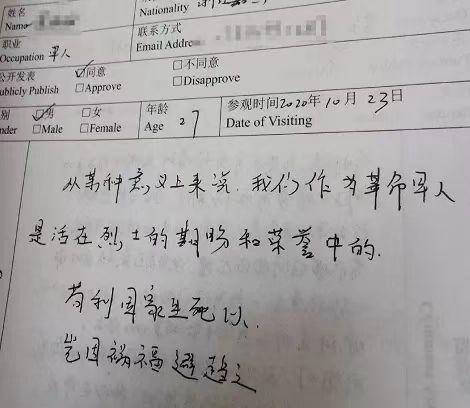 姓名
Name
Nationality
职业
Occupation 军人
联系方式
Email Addre
公开发表
ublicly Publish
☑同意
□Approve
□不同意
□Disapprove
别
nder
☑男
□Male
□女
□Female
年龄
Age 27
参观时间2020年10月23日
Date of Visiting
从某种意义上来说，我们作为革命军人
是活在烈士的期盼和荣誉中的.
苟利国家生死以.
岂因祸福避趋之